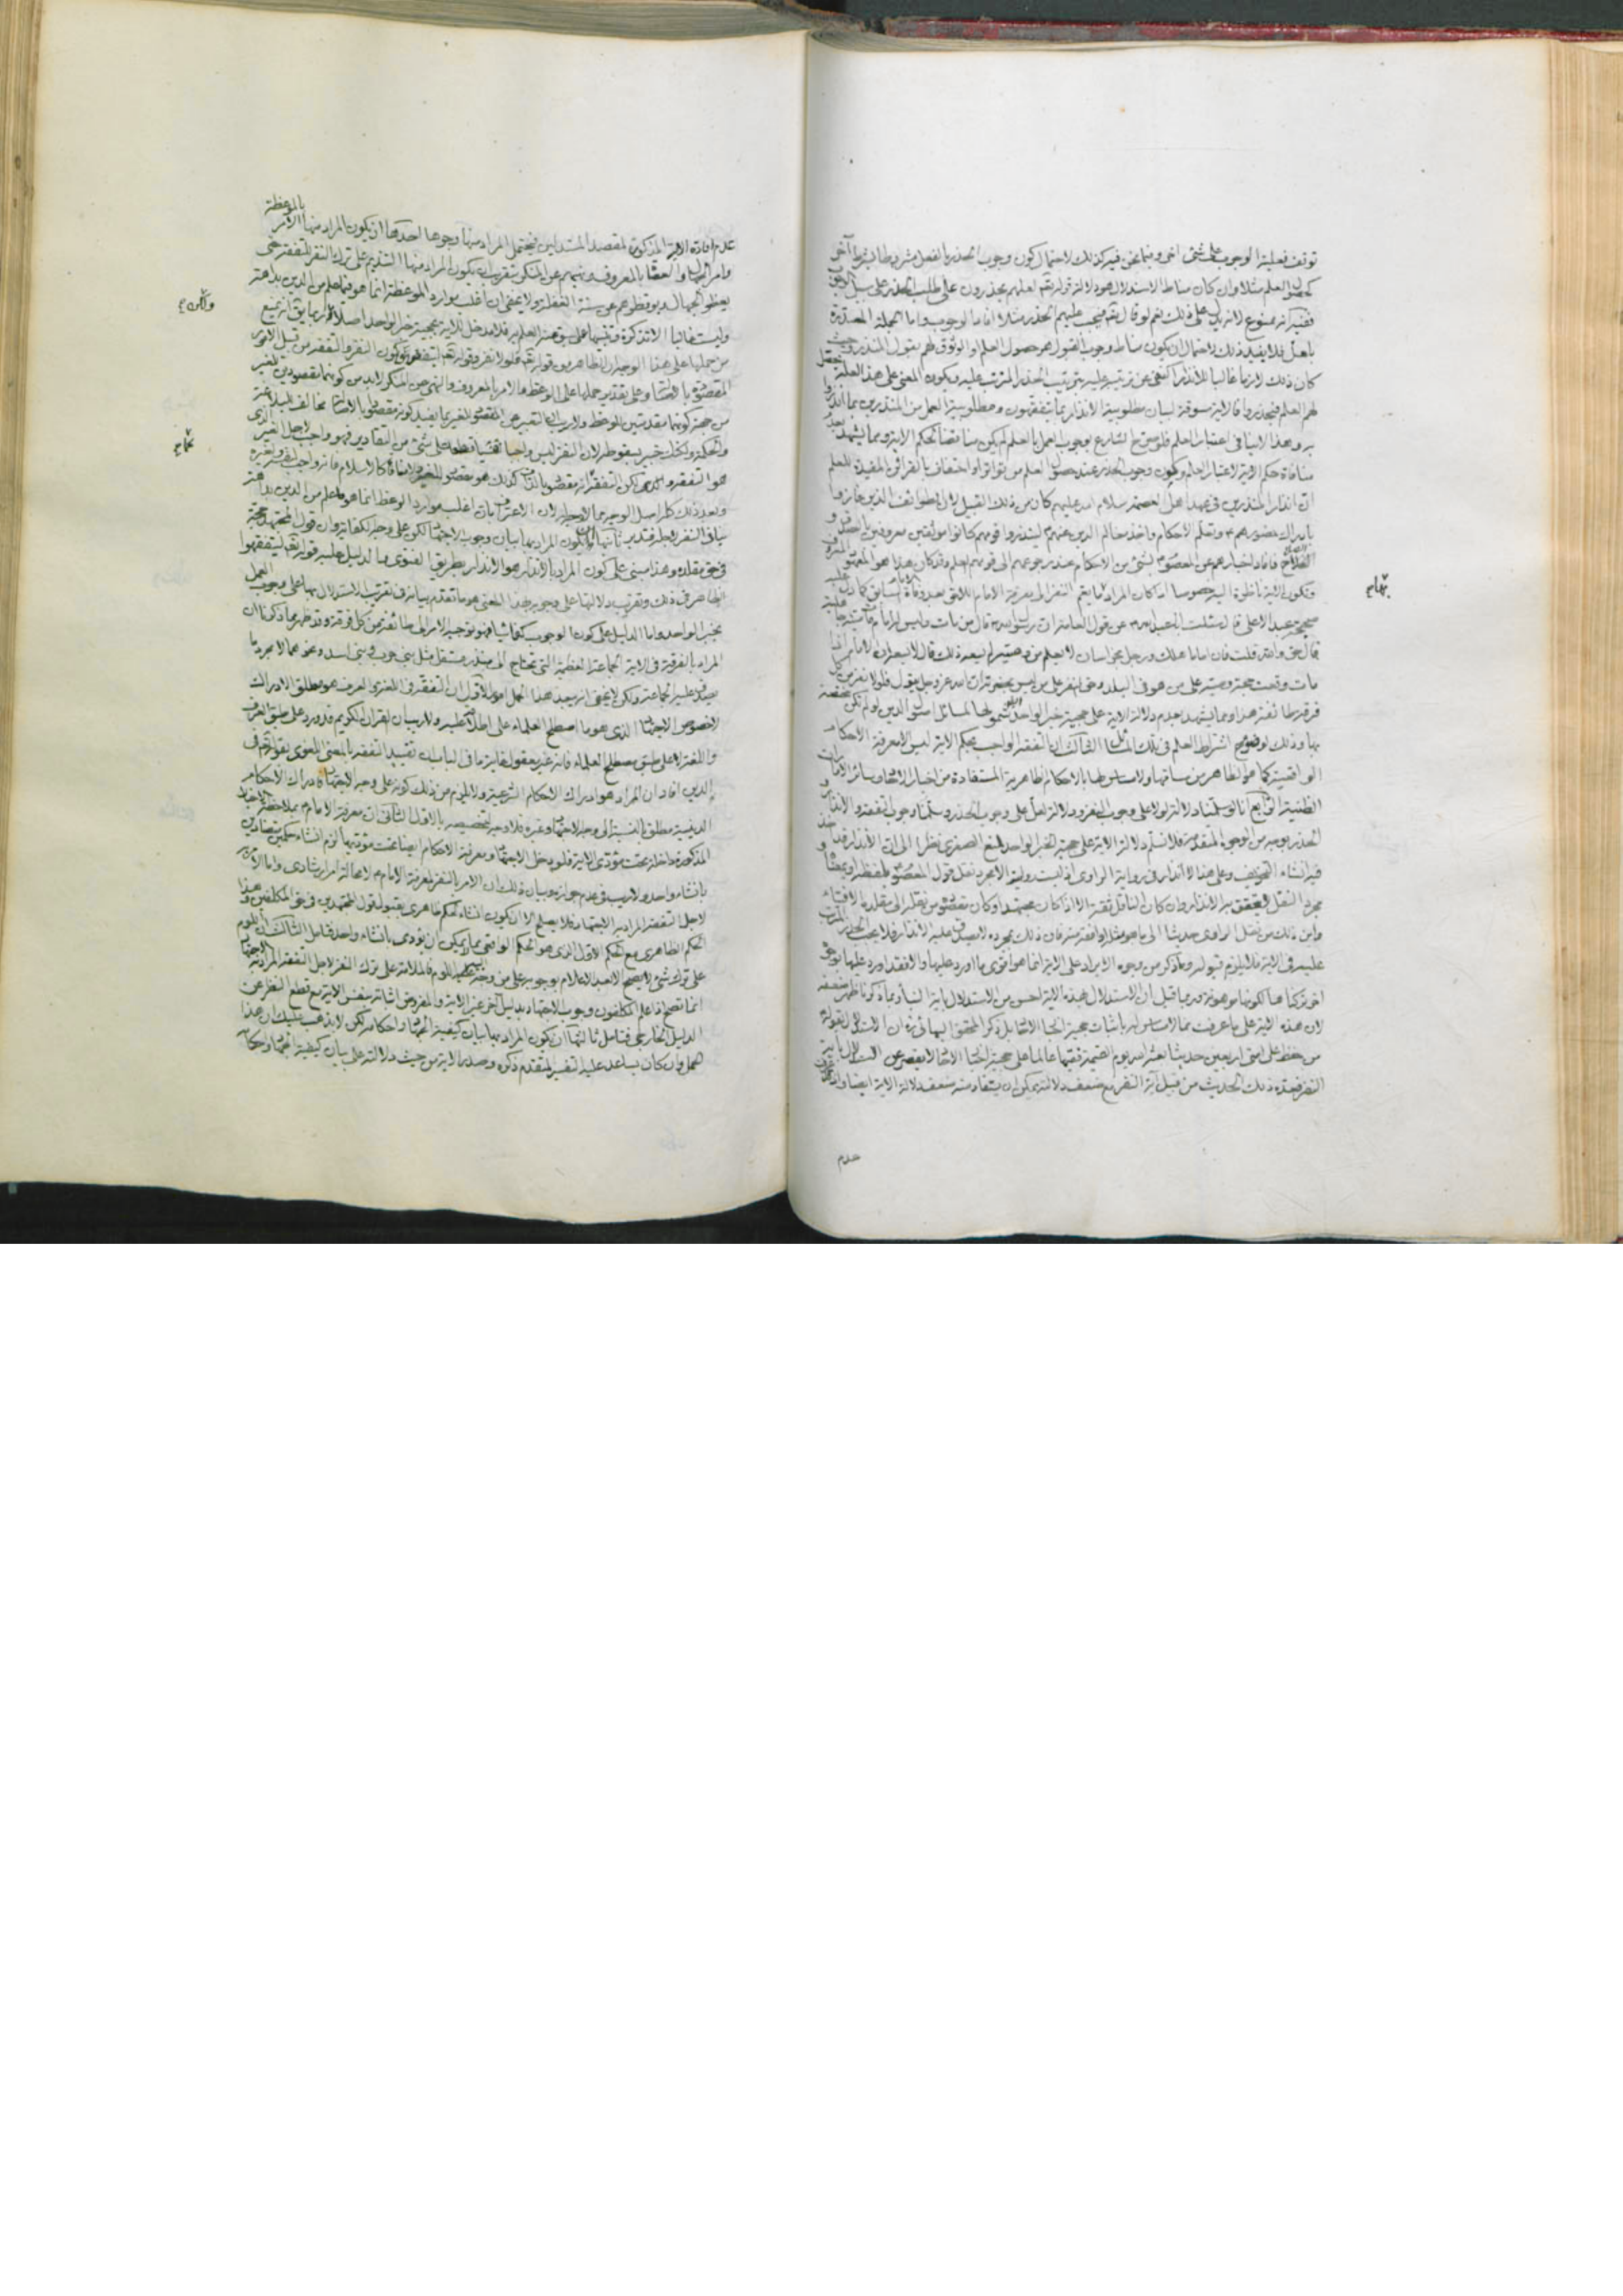 توقف فعلية الوجوب على شيء آخر وفيما نحن فيه كذلك لاحتمال كون وجوب الحذر بالفعل مشروطا بشرط آخر
كحصول العلم مثلا وان كان مناط الاستدلال هو دلالة قوله تعالى لعلهم يحذرون على طلب الحذر على سبيل الوجوب
ففيه انه ممنوع لانه يدل على ذلك نعم لو قال تعالى فيجب عليهم الحذر مثلا افاد الوجوب واما الجملة المصدرة
بلعل فلا يفيد ذلك لاحتمال ان يكون مناط وجوب القبول هو حصول العلم والوثوق لهم بقول المنذر وحيث
كان ذلك لازما غالبا للانذار اكتفى عن ترتيبه عليه بترتيب الحذر المترتب عليه ويكون المعنى على هذا لعله يحصل
لهم العلم فيحذروا فالاية مسوقة لبيان مطلوبية الانذار بما يتفقهون ومطلوبية العمل من المنذرين بما انذروا
به وهذا لا ينافي اعتبار العلم فلو صرح الشارع بوجوب العمل بالعلم لم يكن مناقضا لحكم الاية ومما يشهد بعدم
منافاة حكم الاية لاعتبار العلم وكون وجوب الحذر عند حصول العلم من تواتر او احتفاف بالقرائن المفيدة للعلم
ان انذار المنذرين في عهد اهل العصمة سلام الله عليهم كان من ذلك القبيل لان الطوائف الذين فازوا
بادراك حضورهم وتعلم الاحكام واخذ معالم الدين عنهم لينذروا قومهم كانوا موثقين معروفين بالصدق و
الصلاح فافاد اخبارهم عن المعصوم بشيء من الاحكام عند رجوعهم الى قومهم العلم وقد كان هذا هو المعهود
وتكون الاية ناظرة اليه خصوصا اذا كان المراد ما يعم النفر الى معرفة الامام اللاحق بعد وفاة الامام السابق كما دل عليه
صحيحة عبد الاعلى قال سئلت ابا عبد الله عن قول العامة ان رسول الله قال من مات وليس له امام مات ميتة جاهلية
قال حق والله قلت فان اماما هلك ورجل بخراسان لا يعلم من وصيه لم يسعه ذلك قال لا يسعه ان الامام اذا
مات وقعت حجة وصيه على من هو في البلد وحق النفر على من ليس بحضرته ان الله عز وجل يقول فلولا نفر من كل
فرقة طائفة هذا ومما يشهد بعدم دلالة الاية على حجية خبر الواحد شمولها لمسائل اصول الدين لو لم تكن مختصة
بها وذلك لوضوح اشتراط العلم في تلك المسائل الثالث ان التفقه الواجب بحكم الاية ليس الا معرفة الاحكام
الواقعية كما هو الظاهر من مساقها ولا مساس لها بالاحكام الظاهرية المستفادة من اخبار الاحاد وسائر الامارات
الظنية الرابع انا لو سلمنا دلالة لولا على وجوب النفر ودلالة لعل على وجوب الحذر وسلمنا وجوب التفقه والانذار و
الحذر بوجه من الوجوه المتقدمة فلا نسلم دلالة الاية على حجية الخبر الواحد لمنع الصغرى نظرا الى ان الانذار قد اخذ
فيه انشاء التخويف وعلى هذا لا انذار في رواية الراوي اذ ليست رواية الا مجرد نقل قول المعصوم بلفظه او بمعناه و
مجرد النقل لا يتحقق به الانذار وان كان الناقل ثقة الا اذا كان مجتهدا وكان مقصوده من نقله الى مقلديه الافتاء
واين ذلك من نقل الراوي حديثا الى ما هو مثله او افقه منه فان ذلك بمجرده لا يصدق عليه الانذار فلا يجب الحذر المترتب
عليه في الاية فلا يلزم قبوله وما ذكر من وجوه الايراد على الاية انما هو اقوى ما اورد عليها والا فقد اورد عليها بوجوه
اخر تركناها لكونها موهونة وربما قيل ان الاستدلال بهذه الاية احسن من الاستدلال باية النبأ وبما ذكرنا ظهر ضعفه
لان هذه الاية على ما عرفت مما لا مساس له باثبات حجية اخبار الاحاد بل ذكر المحقق البهائي ان الاستدلال بقوله
من حفظ على امتي اربعين حديثا بعثه الله يوم القيمة فقيها عالما على حجية اخبار الاحاد لا يقصر عن الاستدلال باية
النفر فعد ذلك الحديث من قبيل آية النفر مع ضعف دلالته يمكن ان يستفاد منه ضعف دلالة الاية ايضا واذ قد عرفت
عدم
بالموعظة
عدم افادة الاية المذكورة لمقصد المستدلين فيحتمل المراد منها وجوها احدها ان يكون المراد منها الامر
وامر الجهال والعصاة بالمعروف ونهيهم عن المنكر بتقريب ان يكون المراد منها التنديم على ترك النفر للتفقه حتى
يعظوا الجهال ويوقظوهم عن سنة الغفلة ولا يخفى ان اغلب موارد الموعظة انما هو فيما علم من الدين بداهة
وليست غالبا الا تذكرة وتنبيها على سبق عنه العلم به فلا مدخل للاية بحجية خبر الواحد اصلا الا انه ربما يمنع
من حملها على هذا الوجه ان الظاهر من قوله تعالى فلولا نفر وقوله تعالى ليتفقهوا كون النفر والتفقه من قبيل الامور
المقصودة بالاصالة وعلى تقدير حملها على الوعظ والامر بالمعروف والنهي عن المنكر لا بد من كونهما مقصودين للغير
من جهة كونهما مقدمتين للوعظ ولا ريب ان التعبير عن المقصود للغير بما يفيد كونه مقصودا بالاصالة مخالف للبلاغة
والحكمة ولكنك خبير بسقوطه لان النفر ليس واجبا نفسيا قطعا على شيء من التقادير فهو واجب لاجل الغير الذي
هو التفقه والانذار لكن التفقه انه مقصود بالذات كذلك هو مقصود للغير بالاصالة كالاسلام فانه واجب لنفسه ولغيره
وبعد ذلك كله اصل الوجيه مما لا وجه له لان الاعتراف بان اغلب موارد الوعظ انما هو ما علم من الدين بداهة
ينافي النفر لاجله فتدبر ثانيها ان يكون المراد بها بيان وجوب الاجتهاد لكن على وجه الكفاية وان قول المجتهد حجة
في حق مقلده وهذا مبني على كون المراد بالانذار هو الانذار بطريق الفتوى والدليل عليه قوله تعالى ليتفقهوا
الظاهر في ذلك وتقريب دلالتها على وجوبه بهذا المعنى هو ما تقدم بيانه في تقريب الاستدلال بها على وجوب العمل
بخبر الواحد واما الدليل على كون الوجوب كفائيا فهو توجيه الامر الى طائفة من كل فرقة وقد ظهر مما ذكرنا ان
المراد بالفرقة في الاية الجماعة العظيمة التي تحتاج الى منذر مستقل مثل بني حرب وبني اسد ونحوهما لا مجرد ما
يصدق عليه الجماعة ولكن لا يخفى انه يبعد هذا الحمل امور الاول ان التفقه في اللغة والعرف هو مطلق الادراك
لا خصوص الاجتهاد الذي هو ما اصطلح العلماء على اطلاقه عليه ولا ريب ان القران الكريم قد ورد على طبق العرف
واللغة لا على طبق مصطلح العلماء فانه غير معقول غاية ما في الباب تقييد التفقه بالمعنى اللغوي بقوله تعالى في
الدين افاد ان المراد هو ادراك الاحكام الشرعية ولا يلزم من ذلك كونه على وجه الاجتهاد فادراك الاحكام
الدينية مطلق بالنسبة الى وجه الاجتهاد وغيره فلا وجه لتخصيصه بالاول الثاني ان معرفة الامام بملاحظة الاخبار
المذكورة داخلة تحت مؤدى الاية فلو دخل الاجتهاد ومعرفة الاحكام ايضا تحت مؤديها لزم انشاء حكمين متضادين
بانشاء واحد ولا ريب في عدم جوازه وبيان ذلك ان الامر بالنفر لمعرفة الامام لا محالة امر ارشادي واما الامر به
لاجل التفقه المراد به الاجتهاد فلا يصلح الا ان يكون انشاء لحكم ظاهري بقبول قول المجتهدين في حق المكلفين وهذا
الحكم الظاهري مع الحكم الاول الذي هو الحكم الواقعي مما لا يمكن ان يؤدى بانشاء واحد فتامل الثالث ان اللوم
على ترك شيء لا يصح الا بعد الاعلام بوجوبه على من وجه اليه اللوم فالملامة على ترك النفر لاجل التفقه المراد به الاجتهاد
انما تصح اذا علم المكلفون وجوب الاجتهاد بدليل آخر غير الاية والمفروض اثباته بنفس الاية مع قطع النظر عن
الدليل الخارجي فتامل ثالثها ان يكون المراد بها بيان كيفية الجهاد واحكامه لكن لا يذهب عليك ان هذا
الحمل وان كان يساعد عليه التفسير المتقدم ذكره وصدر الاية من حيث دلالته على بيان كيفية الجهاد واحكامه